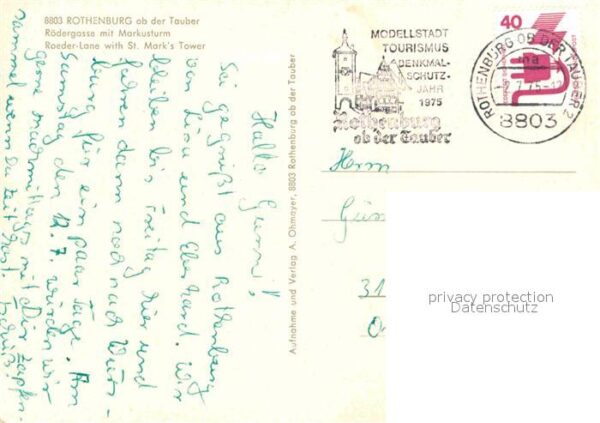 8803 ROTHENBURG ob der Tauber
Rödergasse mit Markusturm
Roeder-Lane with St. Mark's Tower
Hallo Günni!
Sei gegrüßt aus Rothenburg
von Lisa und Eberhard. Wir
bleiben bis Freitag hier und
fahren dann noch nach Würz-
burg für ein paar Tage. Am
Samstag den 12.7. würden wir
gerne nachmittags mit Dir zapfen-
sammeln wenn Du Zeit hast. Tschüß!
Aufnahme und Verlag A. Ohmayer, 8803 Rothenburg ob der Tauber
MODELLSTADT
TOURISMUS
DENKMAL-
SCHUTZ-
JAHR
1975
Rothenburg
ob der Tauber
40
ROTHENBURG OB DER TAUBER 2
ma
7.75-12
8803
Herrn
Gün
31
O
privacy protection
Datenschutz